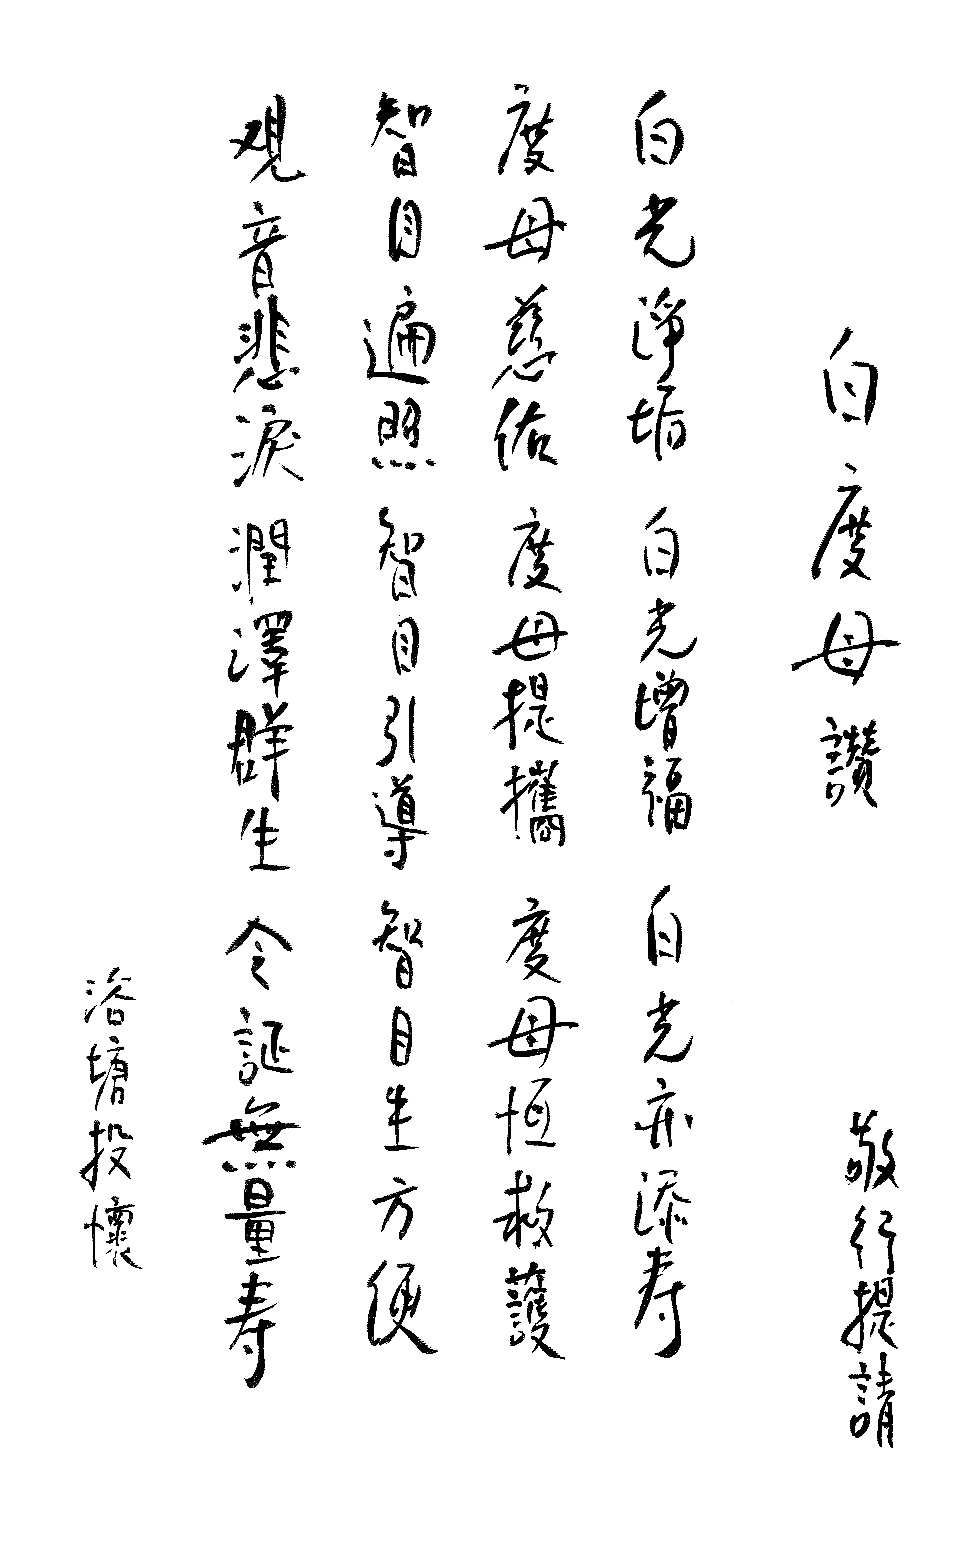 白度母讚
敬行提請
白光淨垢 白光增福 白光亦添寿
度母慈佑 度母提攜 度母恒救護
智目遍照 智目引導 智目生方便
观音悲淚 潤澤群生 令証無量寿
浴塘投懷